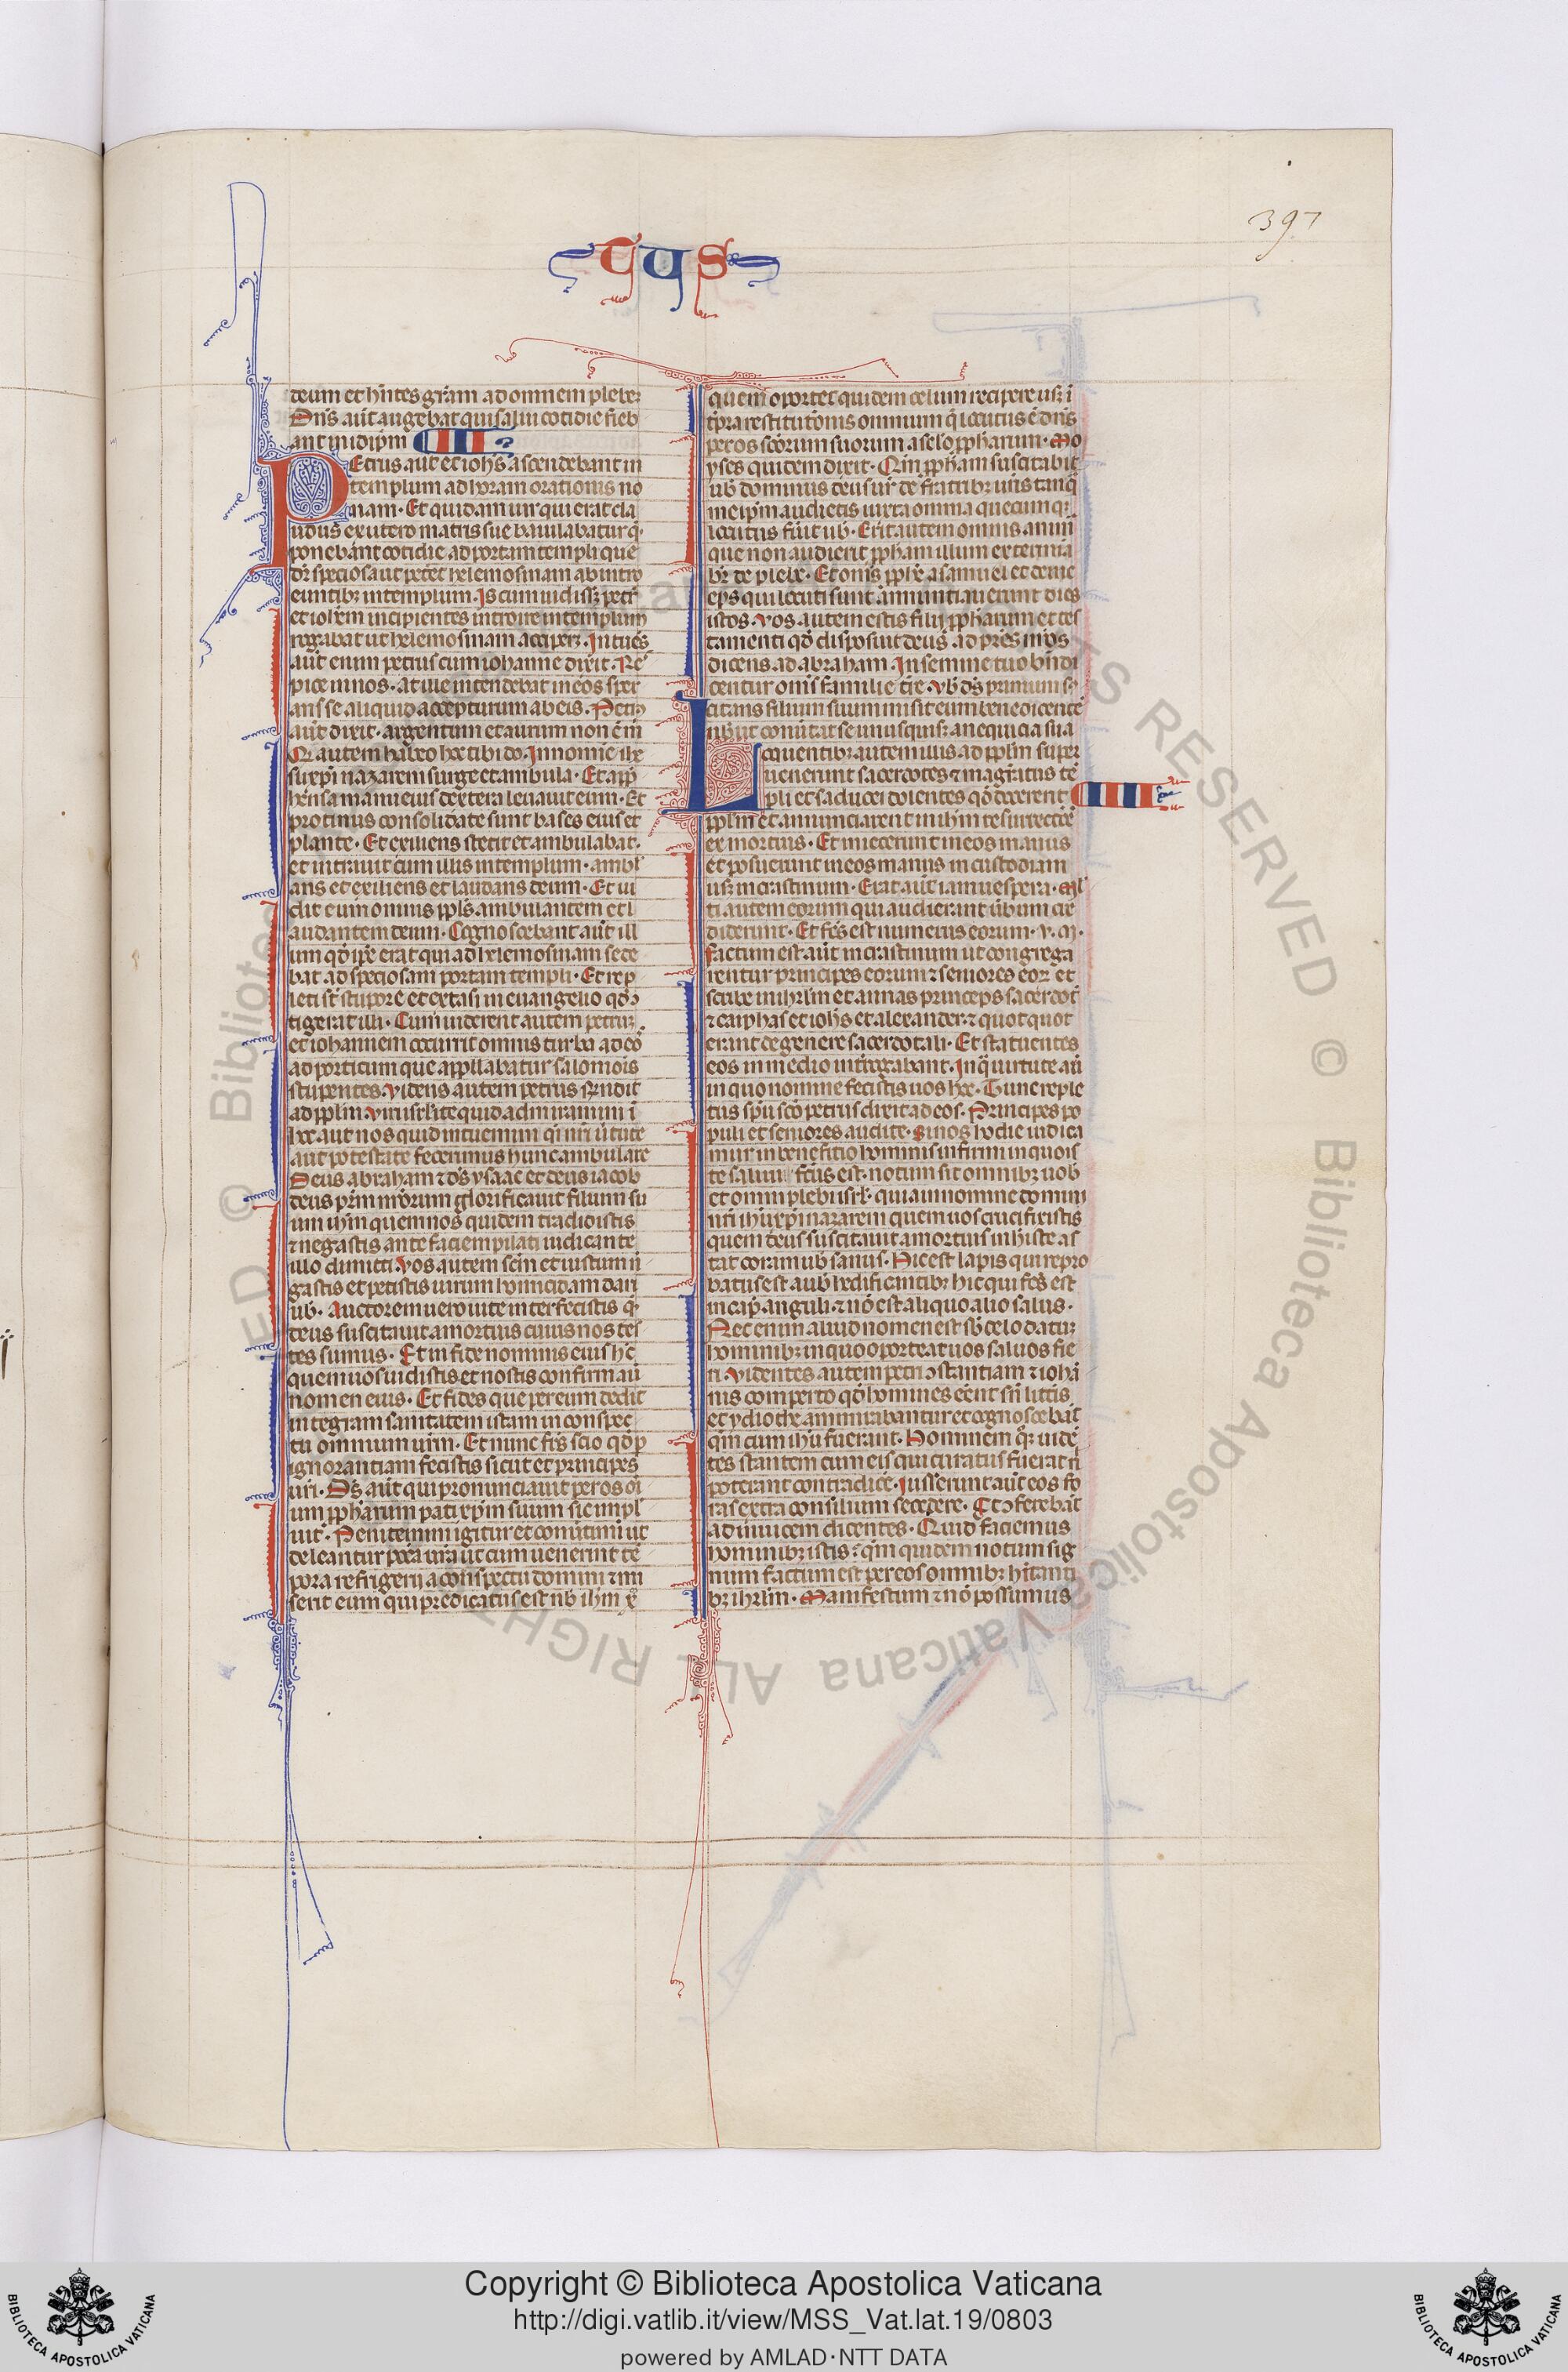 397
TUS
deum et hñtes grãm ad omnem plebeʒ
Dñs aũt augebat qui salui cotidie fieb
ant in idip̃m III
PEtrus aũt et ioh̃s ascendebant in
templum ad horam orationis no
nam. Et quidam uir qui erat cla
udus ex utero matris sue baiulabatur q̃
ponebant cotidie ad portam templi que
dr̃ speciosa ut peteret helemosinam ab intro
euntibʒ in templum. Is cum uidissʒ petrũ
et ioh̃em incipientes introire in templum
rogabat ut helemosinam acciperʒ. Intues
aũt eum petrus cum iohanne dixit. Res
pice in nos. At ille intendebat in eos sper
ans se aliquid accepturum ab eis. Petrus
aũt dixit. argentum et aurum non ẽ m̃
Q̃ autem habeo hoc tibi do. In nomine ihe
su xp̃i nazareni surge et ambula. Et app̃
hensa manu eius dextera leuauit eum. Et
protinus consolidate sunt bases eius et
plante. Et exiliens stetit et ambulabat.
et intrauit cum illis in templum. ambl
ans et exiliens et laudans deum. Et ui
dit eum omnis pp̃ls ambulantem et l
audantem deum. Cognoscebant aũt ill
um qd̃ ip̃e erat qui ad helemosinam sede
bat ad speciosam portam templi. Et rep
leti st̃ stupore et extasi in eo
tigerat illi. Cum uiderent autem petruʒ
et iohannem cocurrit omnis turba ad eõ
ad porticum que appellabatur salomõis
stupentes. Videns autem petrus r̃ndit
ad pp̃lm. Viri isrl̃ite quid admiramini ĩ
hoc aut nos quid intuemini q̃ñ nrã uirtute
aut potestate fecerimus hunc ambulare
Deus abraham ⁊ ds̃ ysaac et deus iacob
deus patrum nrõrum glorificauit filium su
um ihm̃ quem uos quidem tradidistis
⁊ negastis ante faciem pilati iudicante
illo dimitti. Vos autem sc̃m et iustum n
gastis et petistis uirum homicidam dari
ub̃. Auctorem uero uite interfecistis q̃
deus suscitauit a mortuis cuius nos tes
tes sumus. Et in fide nominis eius hc̃
quem uos uidistis et nostis confirmauĩ
nomen eius. Et fides que per eum dedit
integram sanitatem istam in conspec
tu omnium urm̃. Et nunc frs̃ scio qd̃ p̃
ignorantiam fecistis sicut et principes
urĩ. Ds̃ aũt qui pronunciauit per os oi
um pp̃harum pati xp̃m suum sic impl
uit. Penitemini igitur et conuertimini ut
deleantur pccã urã ut cum uenerint tẽ
pora refrigerij a conspectu domini ⁊ mi
serit eum qui predicatus est ub̃ ihm̃ xp̃
quem oportet quidem celum recipere usʒ ĩ
tp̃ra restitutionis omnium q̃ locutus ẽ dñs
per os sc̃orum suorum a sc̃lo pp̃harum. Mo
yses quidem dixit. Qm̃ pp̃ham suscitabit
ub̃ dominus deus ur̃ de fratribʒ urĩs tanq̃
meip̃m audietis iuxta omnia quecumqʒ
locutus fuit ub̃. Erit autem omnis anim̃
que non audierit pp̃ham illum extermina
bit̃ de plebe. Et om̃s pp̃he a samuel et deinc
eps qui locuti sunt annuntiauerunt dies
istos. Vos autem estis filij pp̃harum et tes
tamenti qd̃ disposuit deus ad pres̃ nrõs
dicens ad abraham. In semine tuo bñdi
centur om̃s familie tr̃e. Vb̃ ds̃ primum sus
citans filium suum misit eum benedicente
uob̃ ut conuertat se unusquisqʒ a nequicia sua
LOquentibʒ autem illis ad pp̃lm super
uenerunt sacerdotes ⁊ mag̃ratus tẽ
pli et saducei dolentes qd̃ docerent IIII
pp̃lm et annunciarent in ihm̃ resurrectõe
ex mortuis. Et iniecerunt in eos manus
et posuerunt in eos manus in custodiam
usʒ in crastinum. Erat aũt iam uespera. Ml̃
ti autem eorum qui audierant ũbum cre
diderunt. Et fc̃s est numerus eorum. v. m̃.
Factum est aũt in crastinum ut congrega
rentur principes eorum ⁊ seniores eoꝝ et
scribe in ihrlm̃ et annas princeps sacerdot̃
⁊ caiphas et ioh̃s et alexander ⁊ quotquot
erant de genere sacerdotali. Et statuentes
eos in medio int̃rogabant. In q̃ uirtute aũ
in quo nomine fecistis uos hoc. Tunc reple
tus sp̃u sc̃o petrus dixit ad eos. Principes po
puli et seniores audite. Si nos hodie iudica
mur in benefitio hominis infirmi in quo is
te saluus fc̃us est. notum sit omnibʒ uob̃
et omni plebi isrl̃. quia in nomine domini
nrĩ ihu xp̃i nazareni quem uos crucifixistis
quem deus suscitauit a mortuis in h̃ iste as
tat coram ub̃ sanus. Hic est lapis qui repro
batus est a ub̃ hedificantibʒ hic qui fc̃s est
in cap̃ anguli. ⁊ nõ est aliquo alio salus.
Nec enim aliud nomen est sb̃ celo datum
hominibʒ in quo oporteat uos saluos fie
ri. Videntes autem petri ↄstantiam ⁊ iohã
nis comperto qd̃ homines eẽnt sñ litt̃is
et ydiothe ammirabantur et cognoscebãt
qm̃ cum ihu fuerant. Hominem q̃ʒ uidẽ
tes stantem cum eis qui curatus fuerat ñ
poterant contradicẽ. iusserunt aũt eos fo
ras extra consilium secedere. Et ↄferebãt
ad inuicem dicentes. Quid faciemus
hominibʒ istis? qm̃ quidem notum sig
num factum est per eos omnibʒ hitanti
bʒ ihrlm̃. Manifestum ⁊ nõ possumus
Copyright © Biblioteca Apostolica Vaticana
http://digi.vatlib.it/view/MSS_Vat.lat.19/0803
powered by AMLAD·NTT DATA
BIBLIOTECA APOSTOLICA VATICANA
BIBLIOTECA APOSTOLICA VATICANA
© Biblioteca Apostolica Vaticana ALL RIGHTS RESERVED